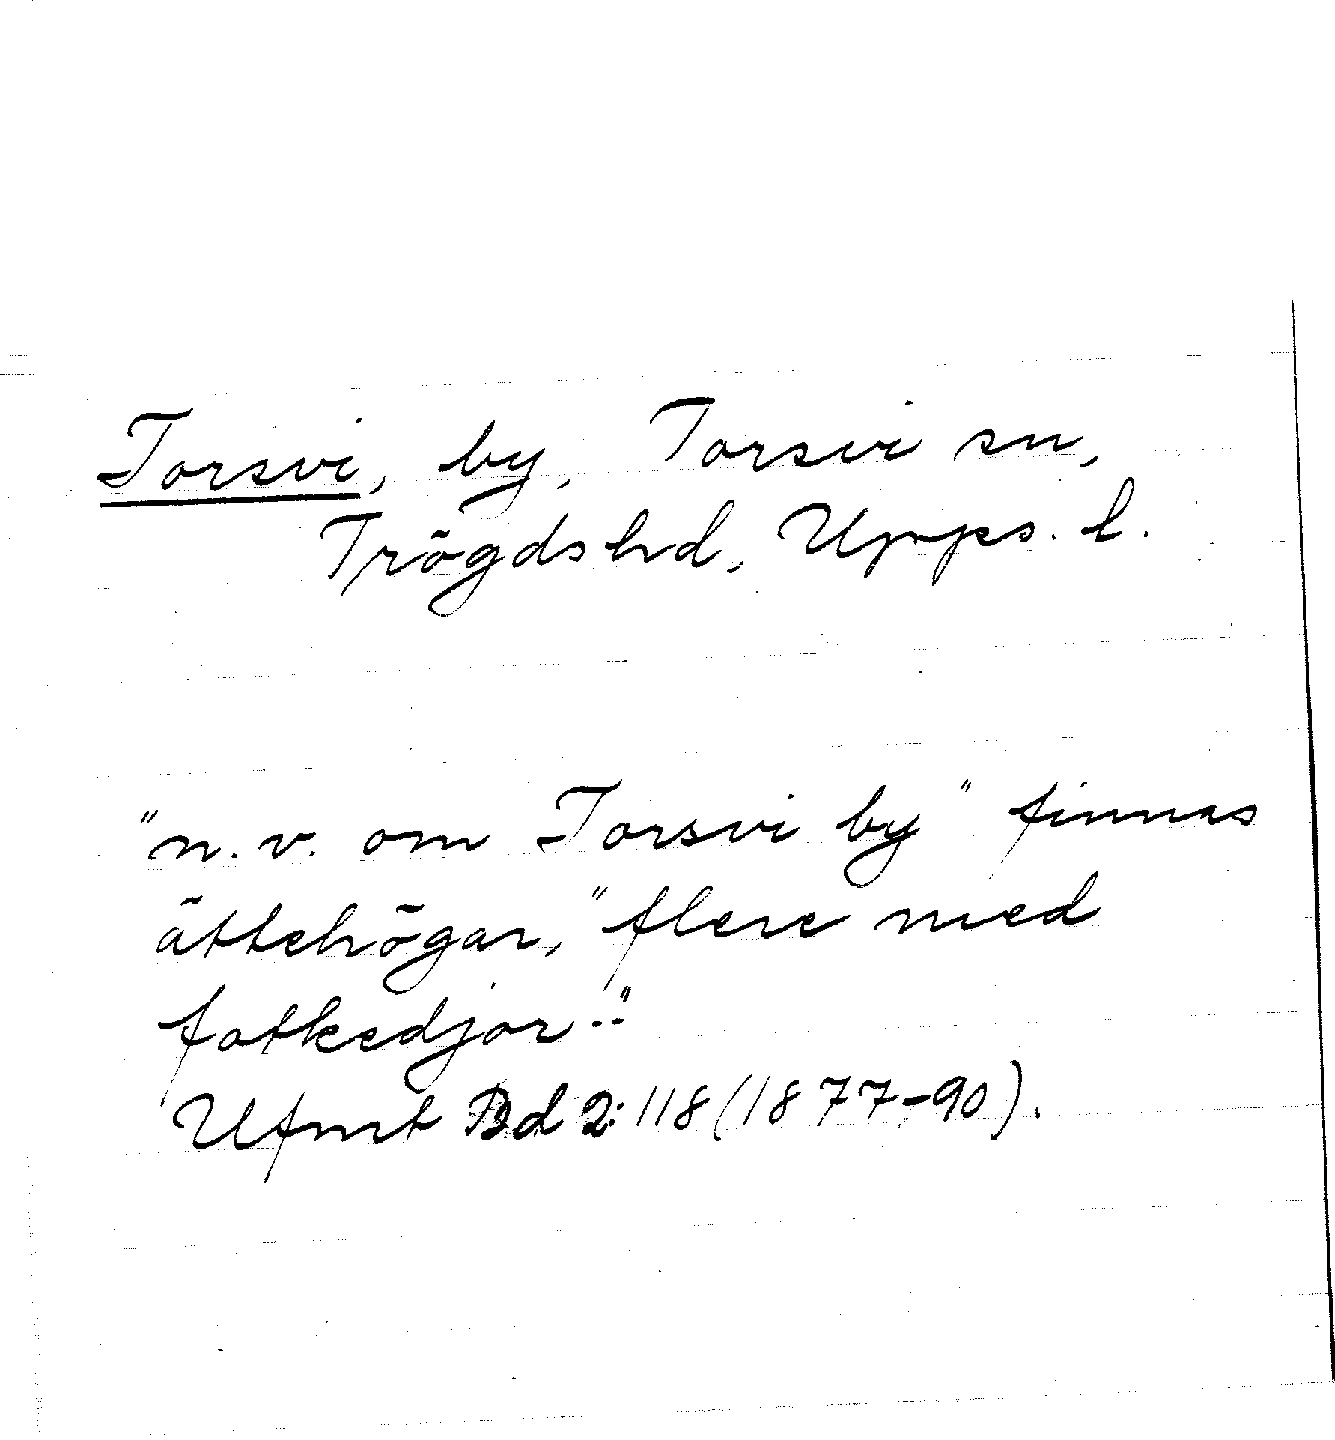 Torsvi, by, Torsvi sn,
Trögds hd, Upps. l.
"n.v. om Torsvi by" finnas
ättehögar, "flere med
fotkedjor.."
Ufmt Bd 2:118 (1877-90).